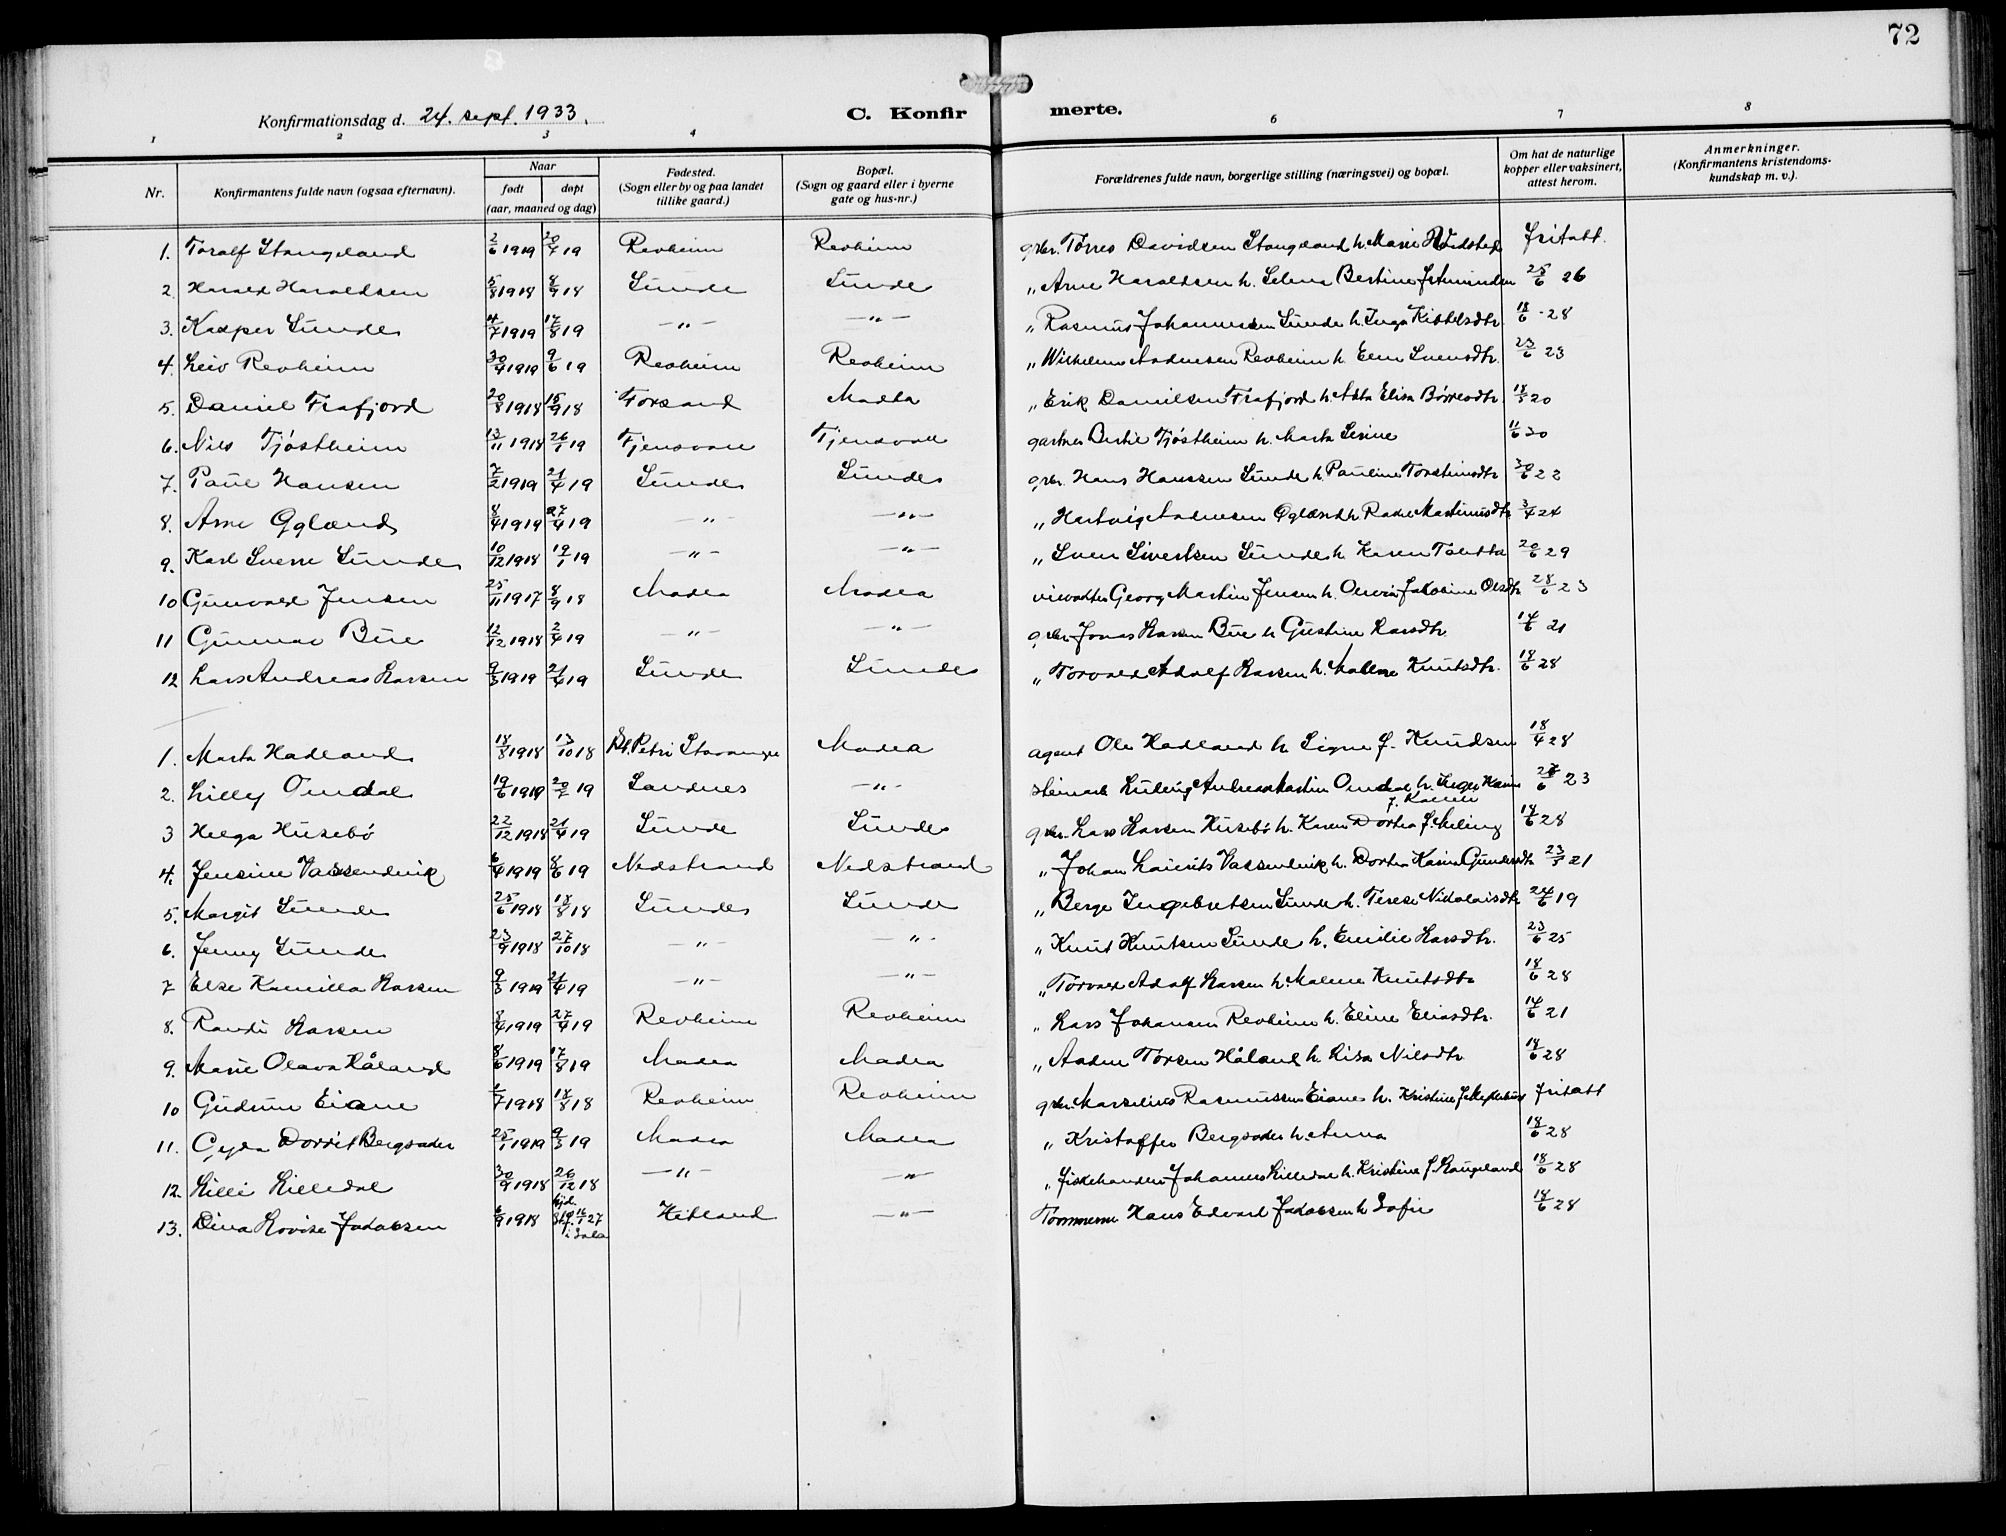 72
Konfirmationsdag d. 24. sept. 1933.
C. Konfirmerte.
1 2 3 4 6 7 8
Nr. Konfirmantens fulde navn (ogsaa efternavn). Naar født døpt (aar, maaned og dag) Fødested. (Sogn eller by og paa landet tillike gaard.) Bopæl. (Sogn og gaard eller i byerne gate og hus-nr.) Forældrenes fulde navn, borgerlige stilling (næringsvei) og bopæl. Om hat de naturlige kopper eller vaksinert, attest herom. Anmerkninger. (Konfirmantens kristendoms-kundskap m. v.).
1. Toralf Stangeland 2/6 1919 20/7 19 Revheim Revheim gbr. Torres Davidsen Stangeland h. Marie fritatt.
2 Harald Haraldsen 5/8 1918 8/9 18 Sunde Sunde „ Arne Haraldsen h. Selma Bertine 25/6 26
3. Kasper Sunde 4/7 1919 17/8 19 —„— —„— „ Rasmus Johannessen Sunde h. Inga Kittelsdtr. 18/6 - 28
4. Leiv Revheim 30/4 1919 9/6 19 Revheim Revheim „ Wilhelm Andersen Revheim h. Elen Svensdtr. 23/6 23
5. Daniel Frafjord 20/8 1918 15/9 18 Forsand Madla „ Erik Danielsen Frafjord h. Elisa Børresdtr. 18/5 20
6. Nils Tjøstheim 13/11 1918 26/1 19 Tjensvoll Tjensvoll gartner Bertil Tjøstheim h. Marta Serine 11/6 30
7. Paul Hansen 7/2 1919 21/4 19 Sunde Sunde gbr. Hans Hanssen Sunde h. Pauline Torsteinsdtr. 30/6 22
8. Arne Oglænd 8/4 1919 27/4 19 —„— —„— „ Hartvig Andersen Oglænd h. Martinusdtr. 3/4 24
9. Karl Sverre Sunde 10/12 1918 19/1 19 —„— —„— „ Sven Sivertsen Sunde h. Karen 20/6 29
10 Gunvald Jensen 25/11 1917 8/9 18 Madla Madla Georg Martin Jensen h. Jakobine Olsdtr. 28/6 23
11 Gunnar Bue 12/12 1918 2/4 19 —„— —„— gbr. Jonas Larsen Bue h. Gustine Larsdtr. 14/6 21
12 Lars Andreas Larsen 9/3 1919 21/4 19 Sunde Sunde „ Torvald Adolf Larsen h. Malene Knutsdtr. 18/6 28
1. Marta Hadland 18/8 1918 13/10 18 St. Petri Stavanger Madla agent Ole Hadland h. Signe f. Knudsen 18/4 28
2. Lilly Omdal 19/6 1919 20/7 19 Sandnes —„— Andreas Martin Omdal h. Inger Karine 6 23
3 Helga Husebø 22/12 1918 21/4 19 Sunde Sunde gbr. Lars Larsen Husebø h. Karen Dortea f. Meling 18/6 28
4. Jensine Vassendvik 6/4 1919 8/6 19 Nedstrand Nedstrand „ Johan Laurits Vassendvik h. Dortea Karine Gundersdtr 23/5 21
5. Margit Sunde 25/6 1918 18/8 18 Sunde Sunde „ Berge Ingebretsen Sunde h. Terese Nikolaisdtr 24/6 19
6. Jenny Sunde 23/9 1918 27/10 18 —„— —„— „ Knut Knutsen Sunde h. Emilie Larsdtr. 23/6 25
7 Else Kamilla Larsen 9/3 1919 21/4 19 —„— —„— „ Torvald Adolf Larsen h. Malene Knutsdtr 18/6 28
8. Randi Larsen 8/4 1919 27/4 19 Revheim Revheim „ Lars Johansen Revheim h. Eline Eliasdtr. 14/6 21
9. Marie Olava Håland 8/6 1919 17/8 19 Madla Madla „ Torsen Håland h. Lisa Nilsdtr 18/6 28
10 Gudrun Eiane 1/7 1918 18/8 18 Revheim Revheim gbr. Marselius Rasmussen Eiane h. Kristine fritatt
11. Gyda Dorrit Bergsaker 25/1 1919 9/3 19 Madla Madla „ Kristoffer Bergsaker h. Anna 18/6 28
12. Lilli Lilledal 30/9 1918 26/12 18 —„— —„— „ fiskehandler Johannes Lilledal h. Kristine f. Haugeland 18/6 28
13. Dina Lovise Jakobsen 6/9 1918 27 i Sola Hetland —„— Hans Edvard Jakobsen h. Sofie 18/6 28